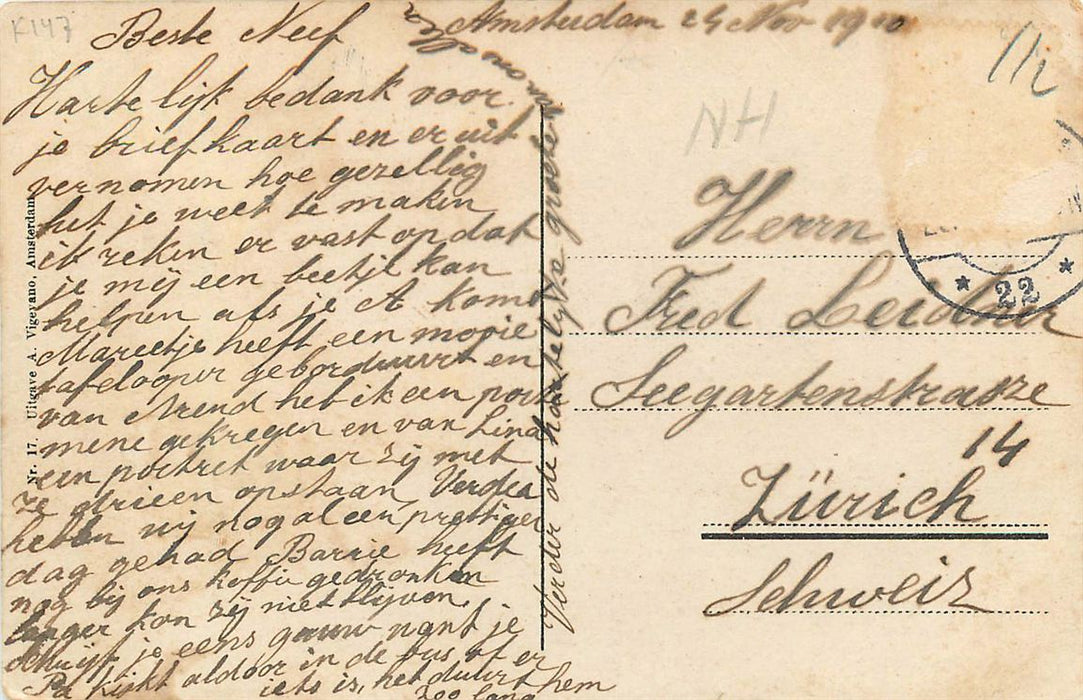 K147
Amsterdam 24 Nov 1910
Beste Neef
Hartelijk bedank voor
je briefkaart en er uit
vernomen hoe gezellig
het je weet te maken
ik reken er vast op dat
je mij een beetje kan
helpen als je A komt
Mareetje heeft een mooie
tafelooper geborduurt en
van Arend heb ik een porte
mene gekregen en van Lina
een portret waar zij met
ze drieen op staan Verder
hebben wij nog al een prettigen
dag gehad Barrie heeft
nog bij ons koffie gedronken
langer kon zij niet blijven
schrijf je eens gauw want je
Pa kijkt aldoor in de bus of er
iets is, het duurt hem
zoo lang
Verder de hartelijkste groeten
Nr. 17. Uitgave A. Vigevano, Amsterdam
1/2
NH
22
Herrn
Fred
Seegartenstrasze
14
Zürich
Schweiz